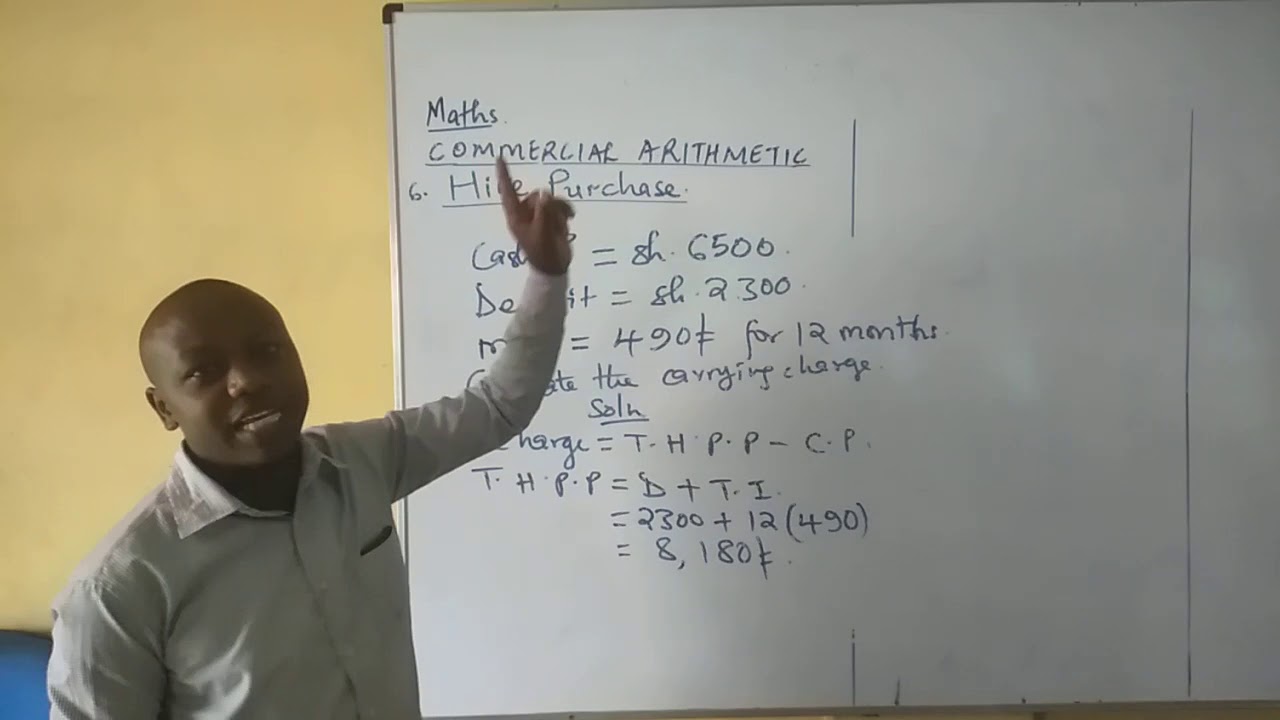 Maths.
COMMERCIAL ARITHMETIC
6. Hire Purchase.
= sh. 6500.
= sh. 2300.
= 490/= for 12 months.
the carrying charge.
Soln
charge = T. H. P. P - C. P.
T. H. P. P = D + T. I.
= 2300 + 12 (490)
= 8, 180/=.